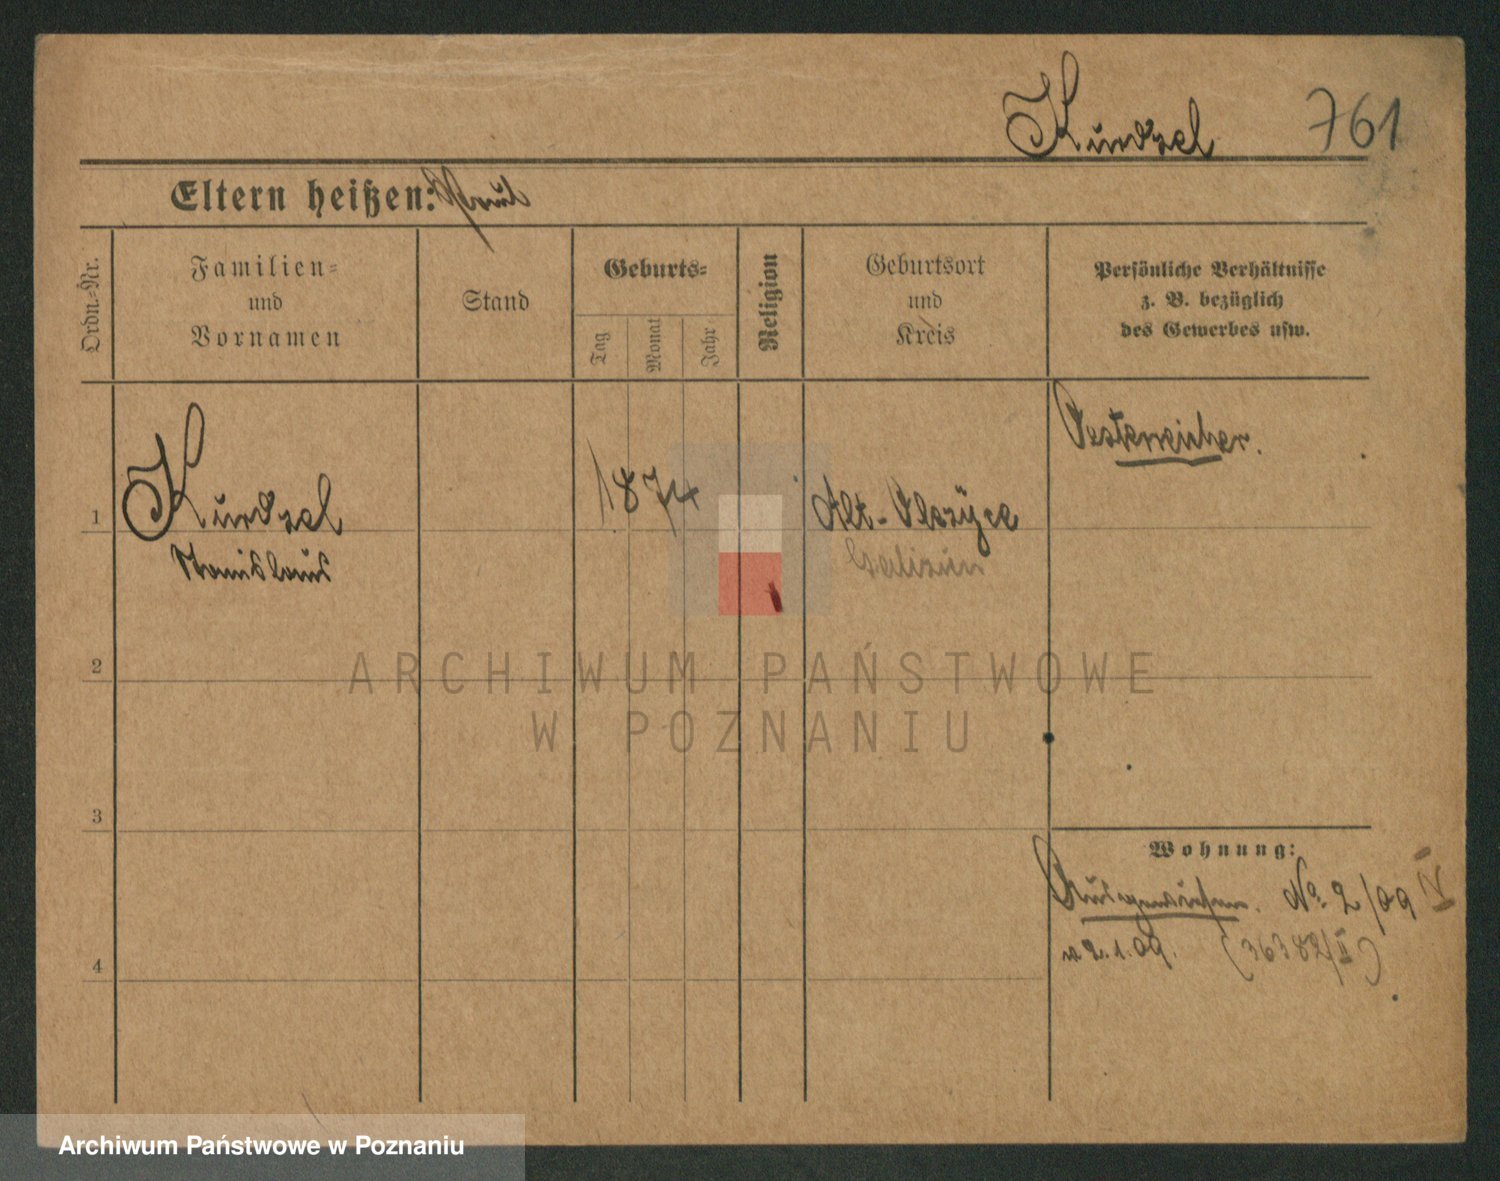 Kurdzel 761
Eltern heißen:
Ordn.=Nr.
Familien=
und
Vornamen
Stand
Geburts=
Tag
Monat
Jahr
Religion
Geburtsort
und
Kreis
Persönliche Verhältnisse
z. B. bezüglich
des Gewerbes usw.
Oesterreicher.
1
Kurdzel
Stanislaus
1874
Alt-
Galizien
2
ARCHIWUM PAŃSTWOWE
W POZNANIU
3
Wohnung:
Ausgewiesen. No. 2/09 V
v. 2.1.09. (36382/II)
4
Archiwum Państwowe w Poznaniu